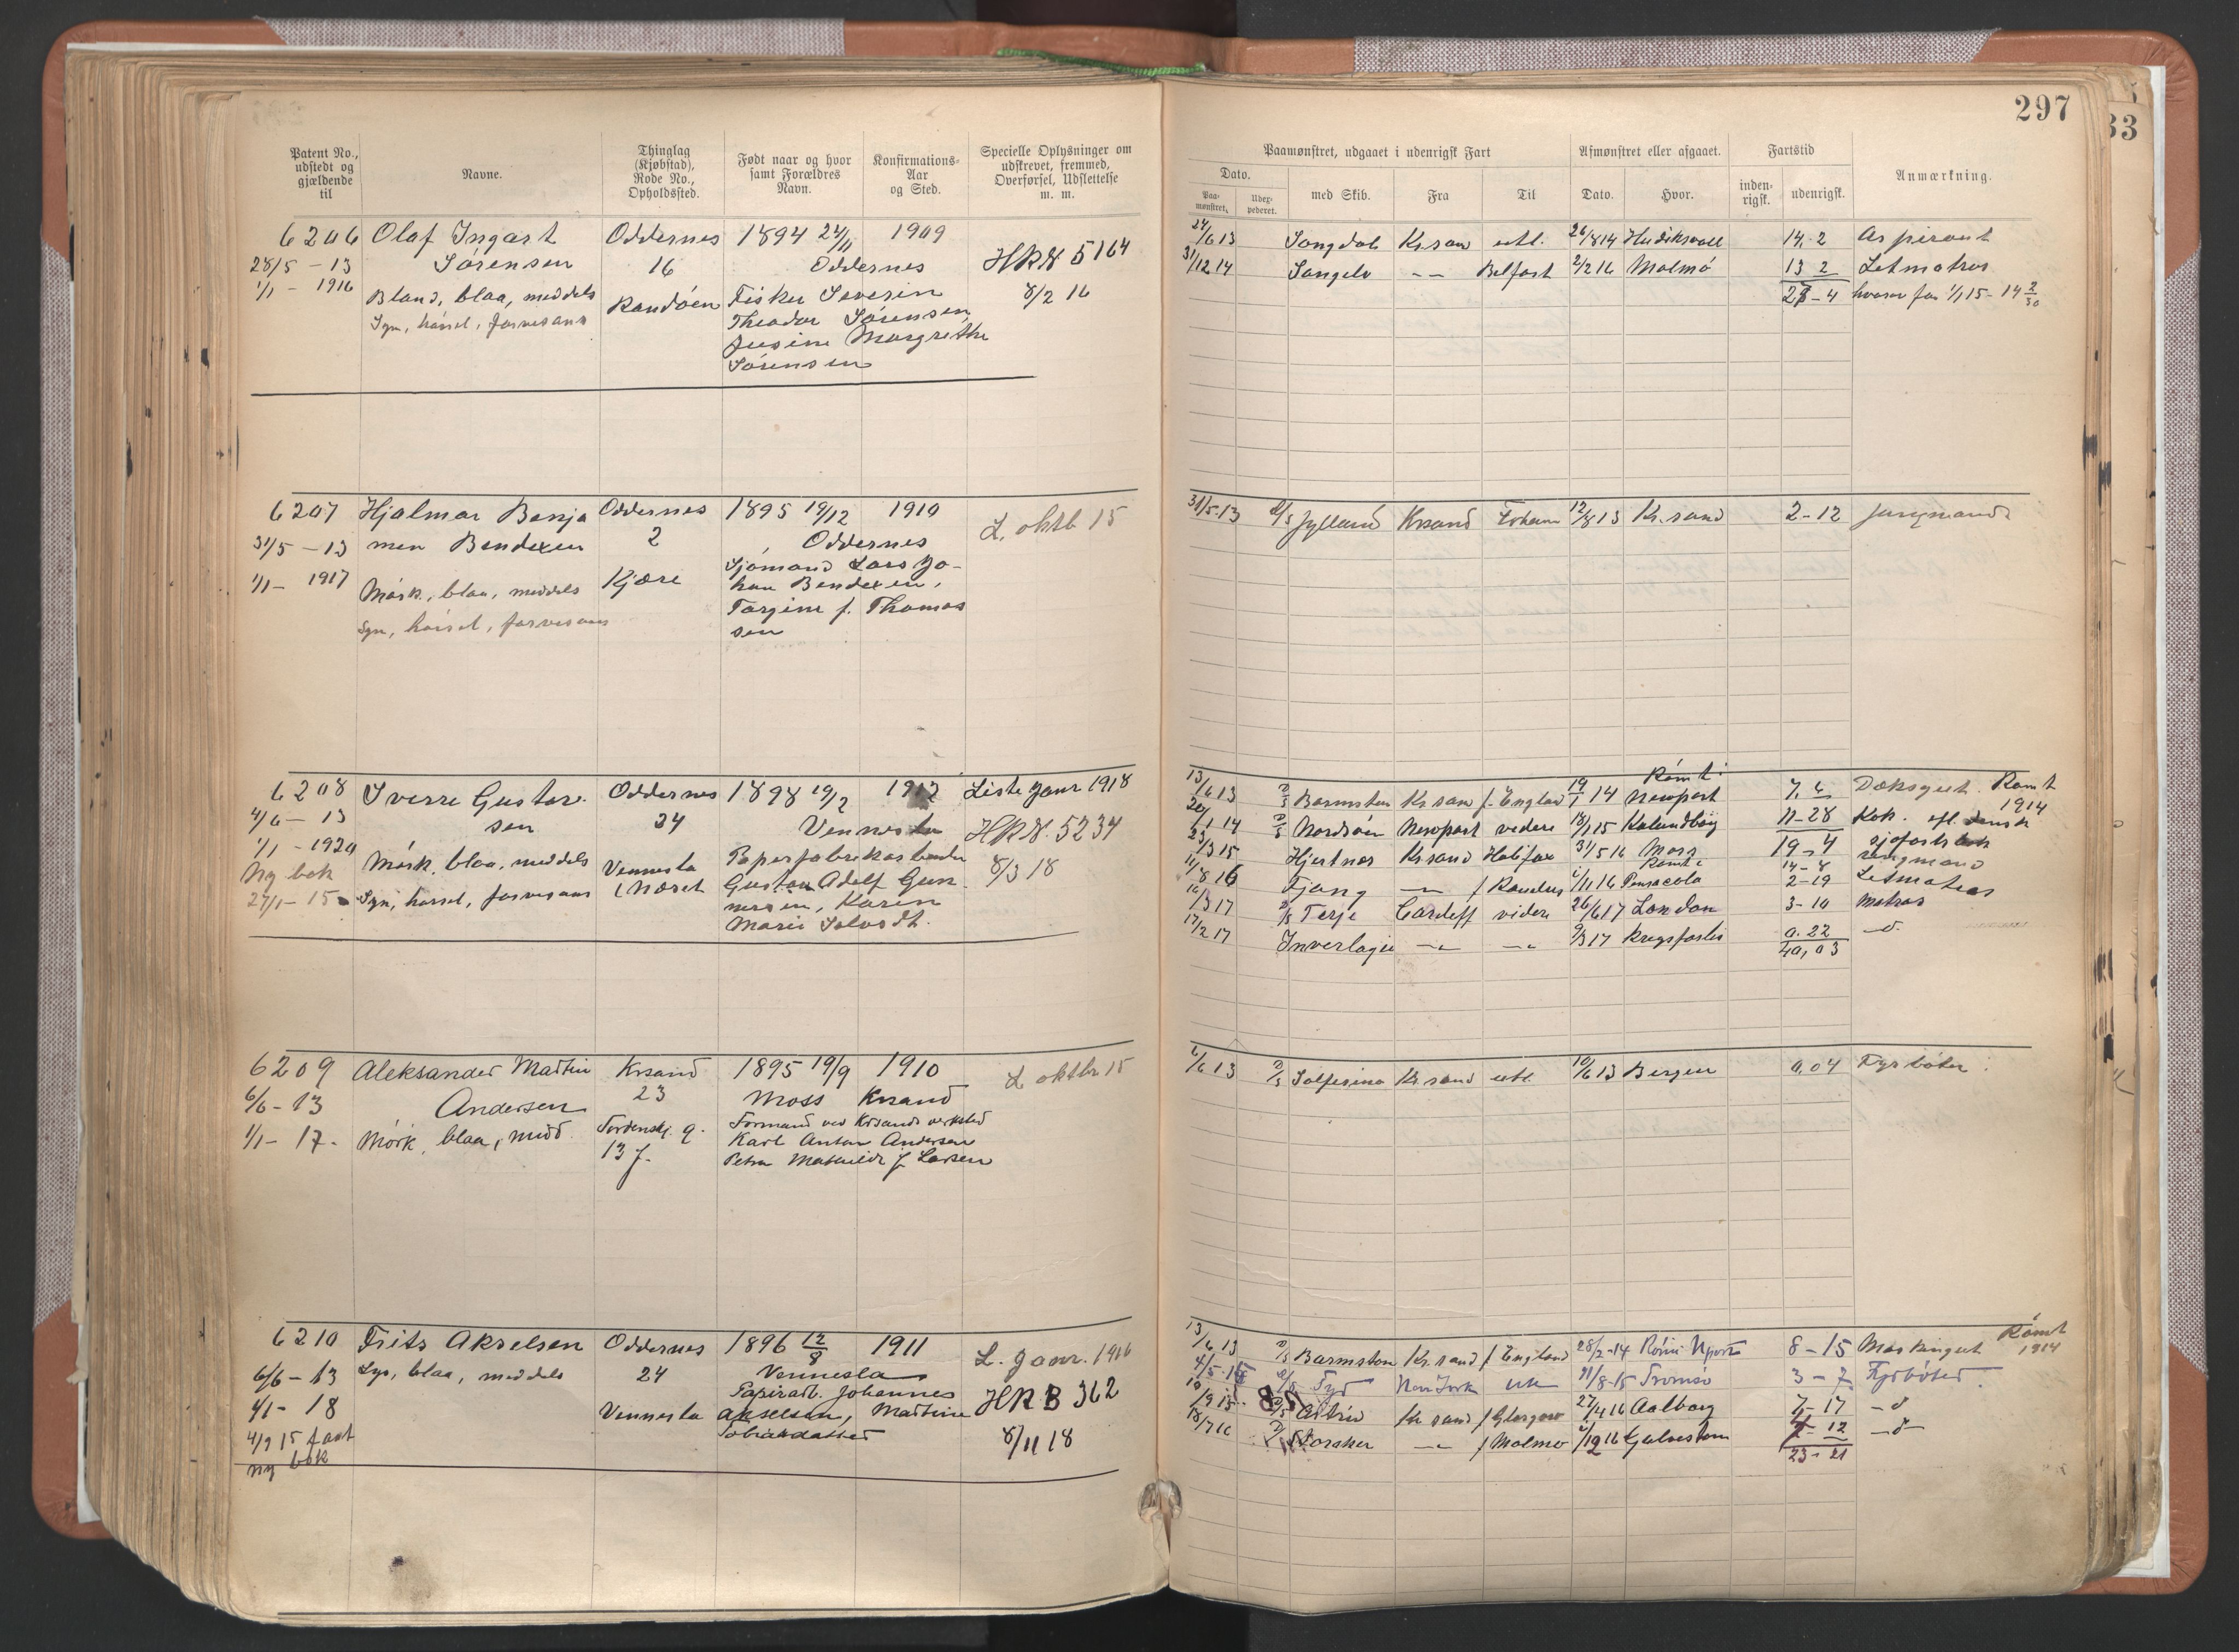 297
33
Patent No., udstedt og gjældende til
Navne.
Thinglag (Kjøbstad), Rode No., Opholdssted.
Født naar og hvor samt Forældres Navn.
Konfirmations-Aar og Sted.
Specielle Oplysninger om udskrevet, fremmed, Overførsel, Udslettelse m. m.
Paamønstret, udgaaet i udenrigsk Fart
Afmønstret eller afgaaet.
Fartstid
Anmærkning.
Dato.
Paa-mønstret.
med Skib.
Fra
Til
Dato.
Hvor.
inden-rigsk.
udenrigsk.
6206 Olaf Ingart Oddernes 1894 24/11 1909
28/5 - 13 Sørensen 16 Oddernes HRN 5164
1/1 - 1916 Blond, blaa, meddels Randøen Fisker Severin 8/2 16
Syn, hørsel, farvesans Theodor Sørensen,
Margrethe
Sørensen
24/6 13 Songdal Kr.sand utl. 26/8 14 Hudiksvall 14-2 Aspirant
31/12 14 Songelv -"- Belfast 2/2 16 Malmö 13 2 Letmatros
27-4 hvorav før 1/1 15 - 14 2/30
6207 Hjalmar Benja Oddernes 1895 19/12 1910 L. oktb 15
31/5 - 13 men Bendixen 2 Oddernes
1/1 - 1917 Mørk, blaa, meddels Kjære Sjømand Lars Jo-
Syn, hørsel, farvesans han Bendixen,
Torgine f. Thomas
sen
31/5-13 D/S Jylland Krsand 12/8 13 Kr.sand 2-12 Jungmand
6208 Sverre Gustav Oddernes 1898 19/2 1912 Liste Janr 1918
4/6 - 13 sen 24 Vennesla HRN. 5234
1/1 - 1920 Mørk, blaa, meddels Vennesla Papirfabrikarbeider 8/3 18
Ny bok Syn, hørsel, farvesans Moseid Gustav Adolf Gun
27/1 - 15 nersen, Karin
Marie Solvodt.
13/6 13 D/S Barmston Kr.sand f. England 19/1 14 Rømt Newport 7.6 Dæksgut. Rømt 1914
20/1 14 D/S Nordsøen Newport videre 18/1 15 Kalundborg 11-28 Kok. efl. dansk
23/3 15 Hjertnes Krsand Halifax 31/5 16 Moss 19-4 sjøfartsbok
11/8 16 Fjong -"- f Randers 1/11 16 Rømt i Pensacola 14-8 Jungmand
2-19 Letmatros
16/3 17 D/S Terje Cardiff videre 26/6 17 London 3-10 Matros
17/2 17 Inverlogie -"- -"- 9/3 17 Krigsforlis 0.22 -d-
40,03
6209 Aleksander Martin Krsand 1895 19/9 1910 L oktbr 15
6/6 - 13 Andersen 23 Moss Krsand
1/1 - 17. Mørk, blaa, midd. Tordenskj. g. Formand ved Krsands verksted
13 f. Karl Anton Andersen
Petra Mathilde f Larsen
6/6 13 D/S Solferino Kr.sand utl. 10/6 13 Bergen 0.04 Fyrbøter.
6210 Frits Akselsen Oddernes 1896 12/8 1911 L. Janr. 1916
6/6 - 13 Lys, blaa, meddels 24 Vennesla
1/1 - 18 Papirarb. Johannes HRB 362
Vennesla Akselsen, Martine
4/9 15 faat Tobiasdatter 8/11 18
ny bok
13/6 13 D/S Barmston Kr.sand f England 28/2-14 Rømt Nport 8-15 Maskingut Rømt 1914
4/5-15 D/S Fyd New York utl 31/8-15 Tromsø 3-7 Fyrbøter.
10/9 15. D/S Astrid Kr sand f Glasgow 27/4 16 Aalborg 7-17 -d-
18/7 16 D/S Storaker -"- f Malmø 1/12 16 Galveston 4-12 -d-
23-21